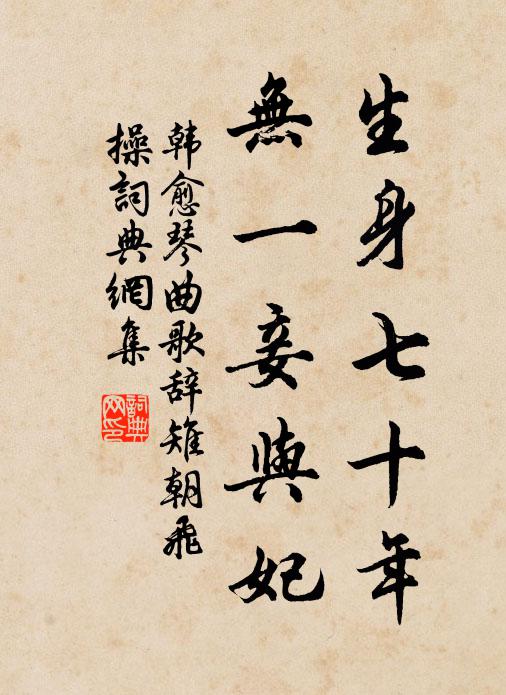 生身七十年
無一妾與妃
韩愈琴曲歌辞雉朝飛
操詞典網集
詞典
网印